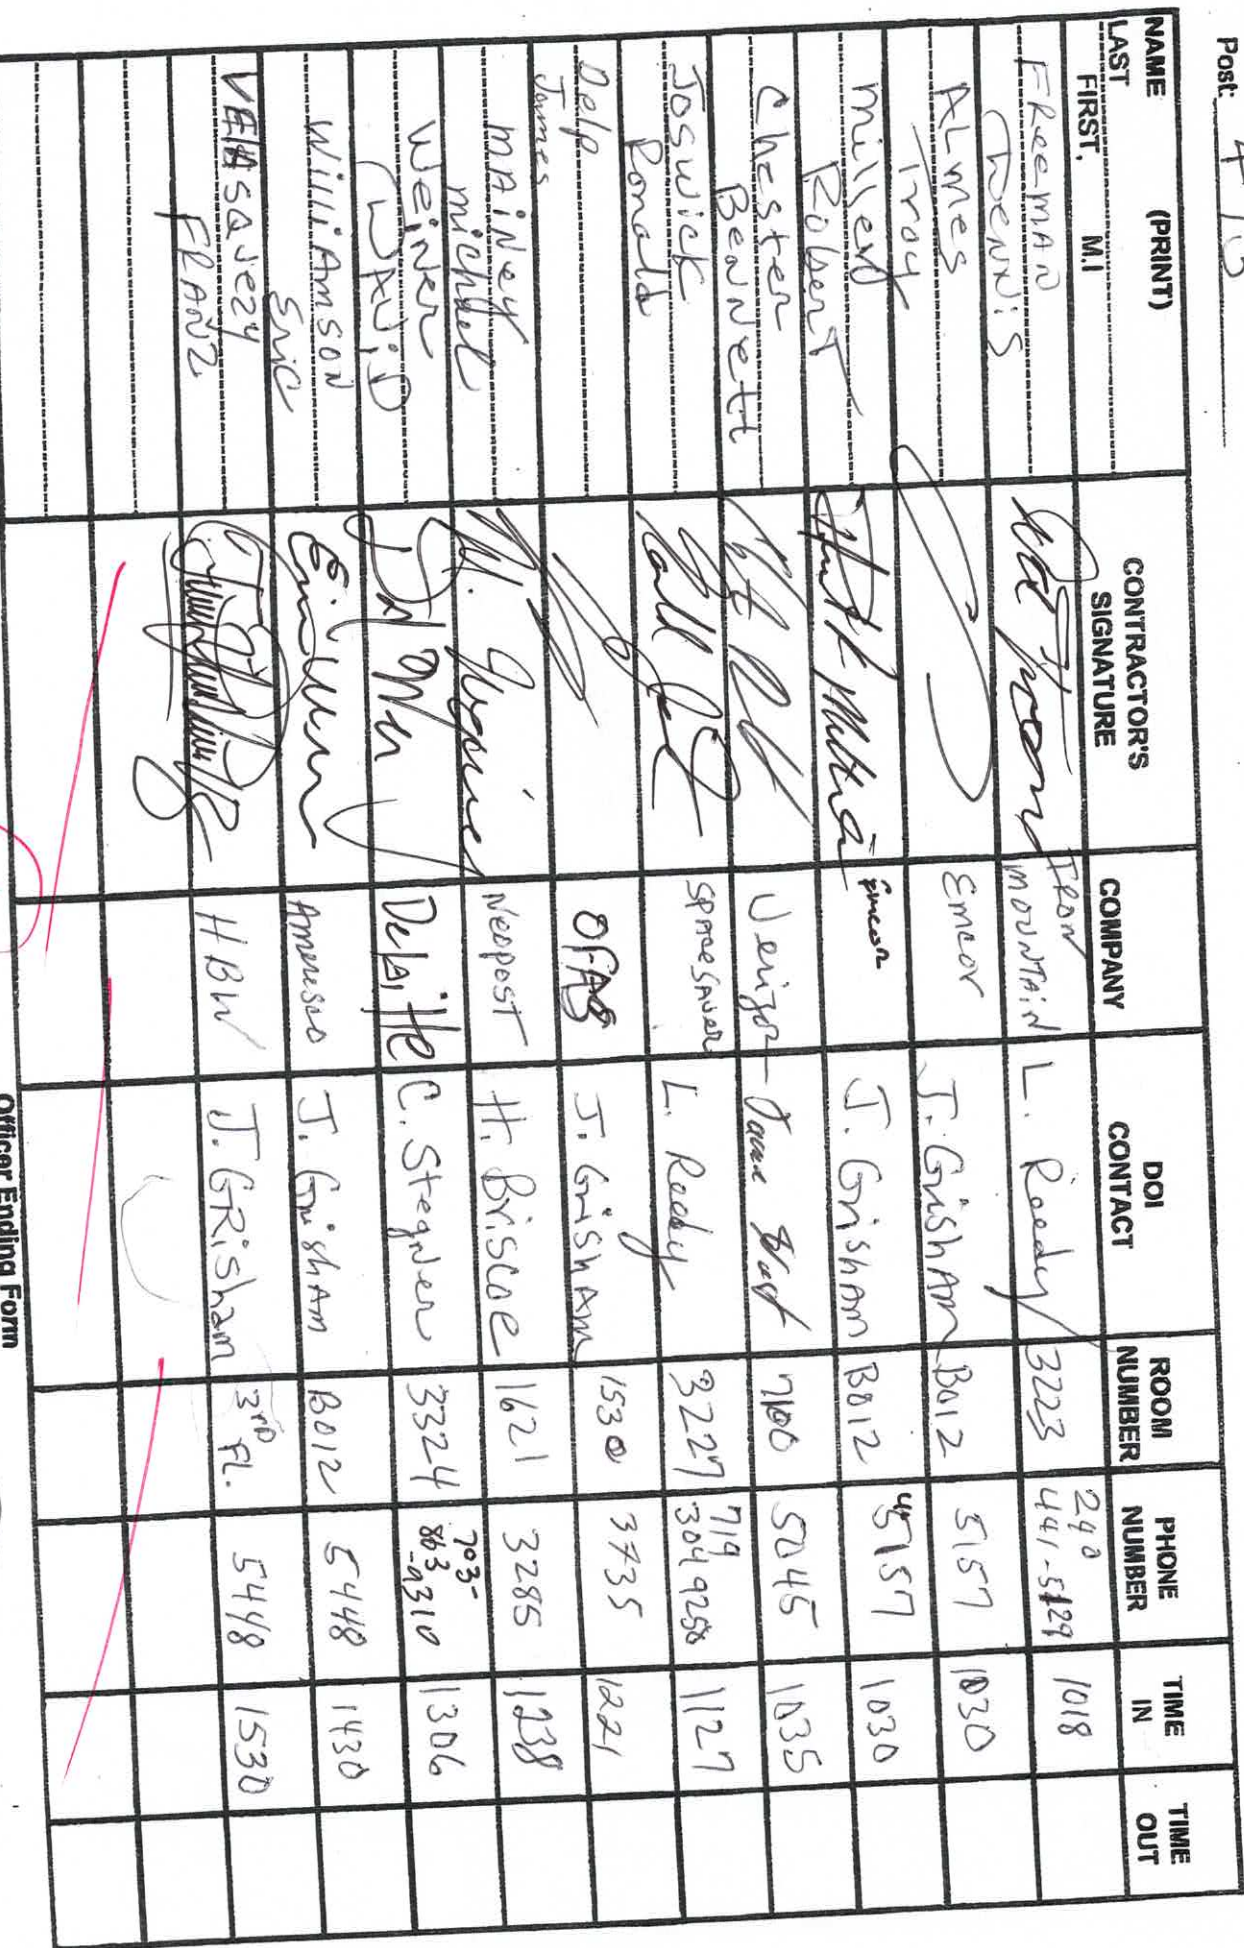 Post: 4-10
NAME (PRINT)
LAST FIRST, M.I
CONTRACTOR'S SIGNATURE
COMPANY
DOI CONTACT
ROOM NUMBER
PHONE NUMBER
TIME IN
TIME OUT
FReemAN DeNNiS IRON MOUNTAiN L. Reedy 3223 240 441-5129 1018
ALmes Troy Emcor J. GrishAm B012 5157 1030
Robert Emcor J. GrishAm B012 5157 1030
Chester BeNNett Verizon 7100 5045 1035
Joswick Ronald SpaceSaver L. Reedy 3227 719 304 9258 1127
Delp James J. GrishAm 1530 3735 1221
mAiNey michael Neopost H. Briscoe 1621 3285 1238
WeiNer DAViD C. StegNer 3324 703-863-9310 1306
WilliAmsoN Eric Ameresco J. GrishAm B012 5448 1430
FRANZ HBW J. GRisham 3RD FL. 5448 1530
Officer Ending Form